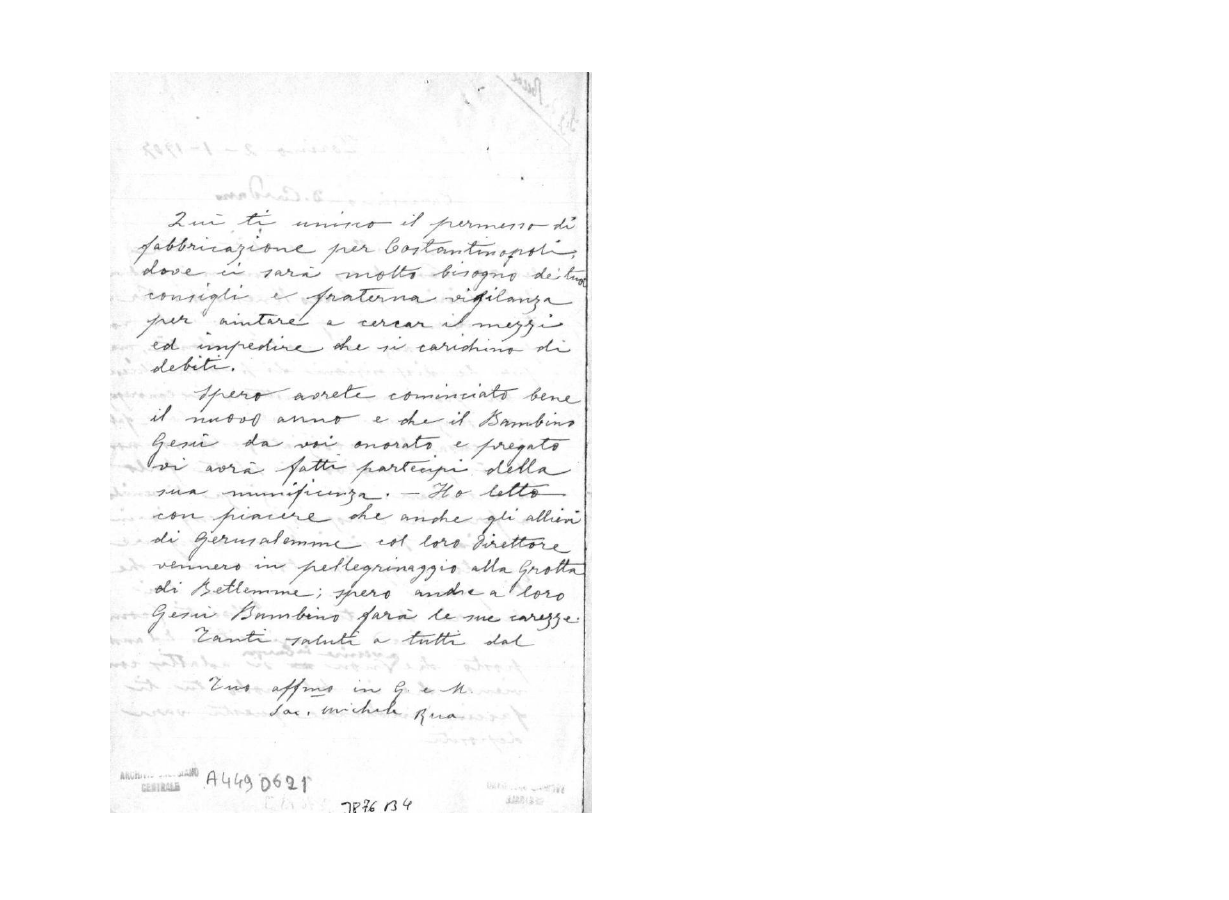 Qui ti unisco il permesso di
fabbricazione per Costantinopoli,
dove ci sarà molto bisogno dei tuoi
consigli e fraterna vigilanza
per aiutare a cercar i mezzi
ed impedire che si carichino di
debiti.
Spero avrete cominciato bene
il nuovo anno e che il Bambino
Gesù da voi onorato e pregato
vi avrà fatti partecipi della
sua munificenza. – Ho letto
con piacere che anche gli allievi
di Gerusalemme col loro Direttore
vennero in pellegrinaggio alla Grotta
di Betlemme; spero anche a loro
Gesù Bambino farà le sue carezze.
Tanti saluti a tutti dal
Tuo affmo in G e M
Sac. Michele Rua
CENTRALE
A449D621
7876 B4